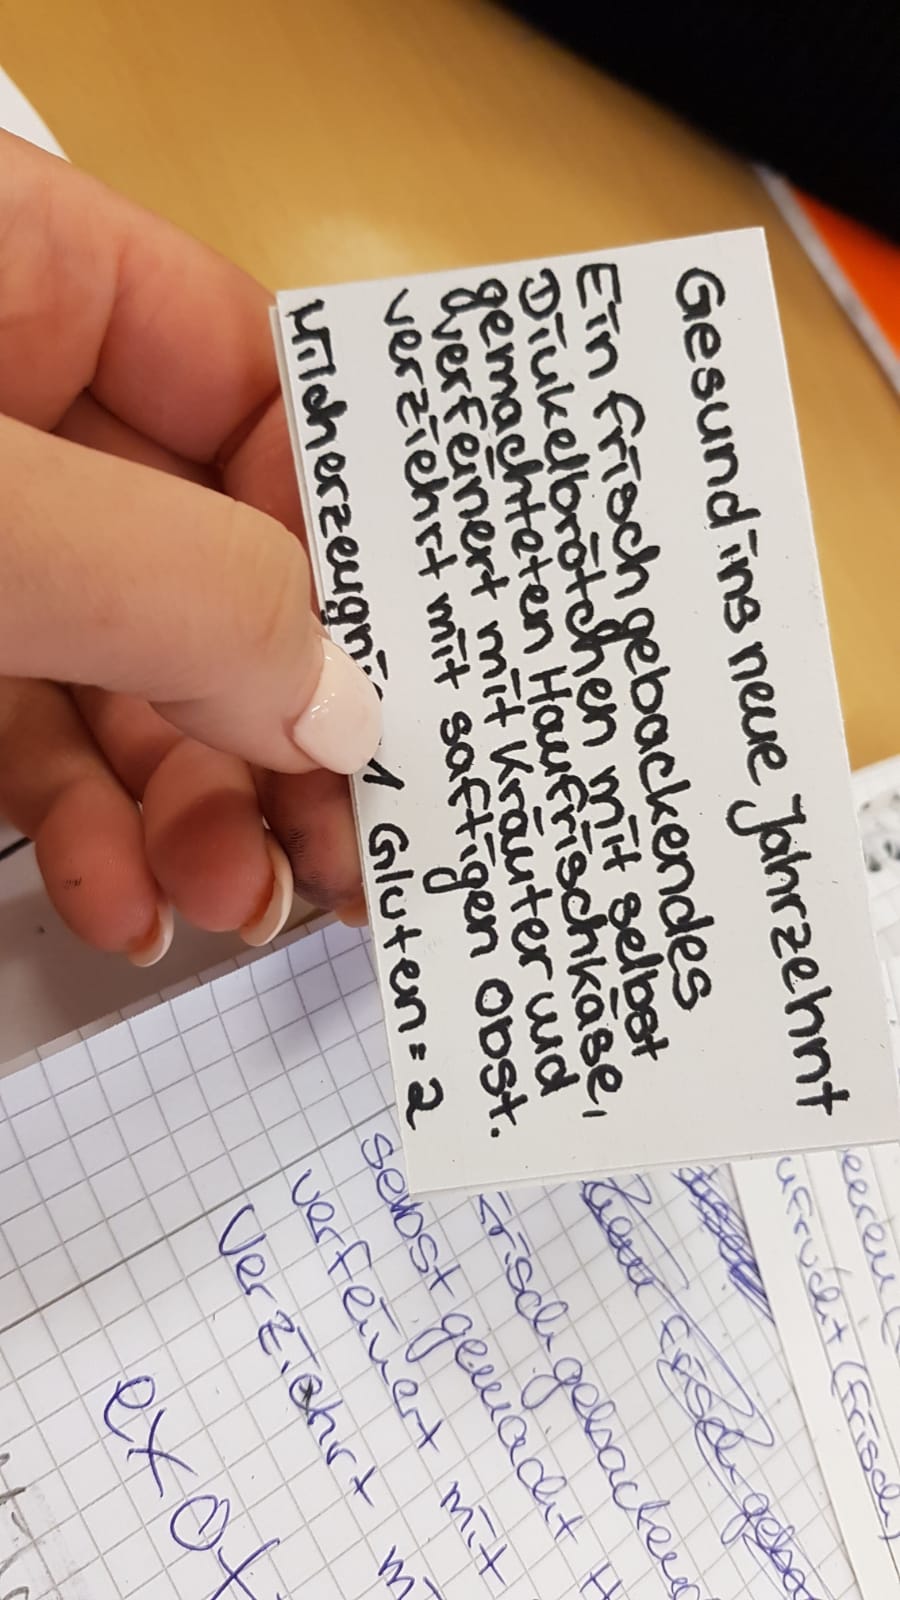 Gesund ins neue Jahrzehnt
Ein frisch gebackendes
Diukelbrötchen mit selbst
gemachteten Haufrischkäse,
verfeinert mit kräuter und
verziehrt mit saftigen obst.
Milcherzeugni 1 Gluten = 2
frisch gebacken
selbst gemacht H
verfeinert mit
verziehrt m
exot